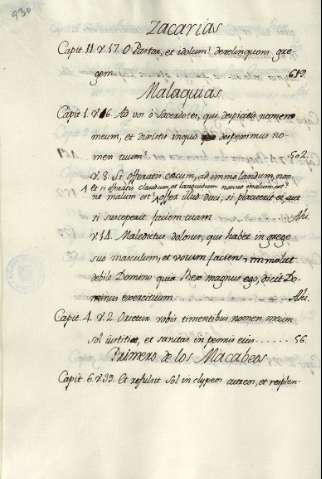 930
Zacarias
Capit. 11. v. 17. O Pastor, et idolum! derelinquens gre-
gem. 619.
Malaquias
Capit. 1. v. 6. Ad vos ô Sacerdotes, qui despicitis nomen
meum, et dixistis inquo despeximus no-
men tuum? 502.
v. 8. Si offeratis cœcum, ad immolandum, non-
et si offeratis claudum, et languidum nonne malum est?
ne malum est? offer illud duci, si placuerit ei, aut
si susceperit faciem tuam Ahi.
v. 14. Maledictus dolosus, qui habet in grege
suo masculum, et votum faciens immolat
debile Domino quia Rex magnus ego, dicit Do-
minus exercituum Ahi.
Capit. 4. v. 2. Orietur vobis timentibus nomen meum
sol iustitiæ, et sanitas in pennis eius 56.
Primero de los Macabeos
Capit. 6. v. 39. Et refulsit sol in clypeos aureos, et resplen-